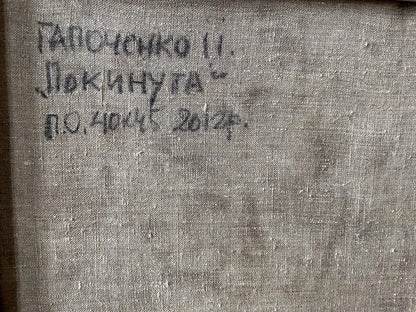 ГАПОЧЕНКО П.
„Покинута"
П.О. 40х45 2012р.